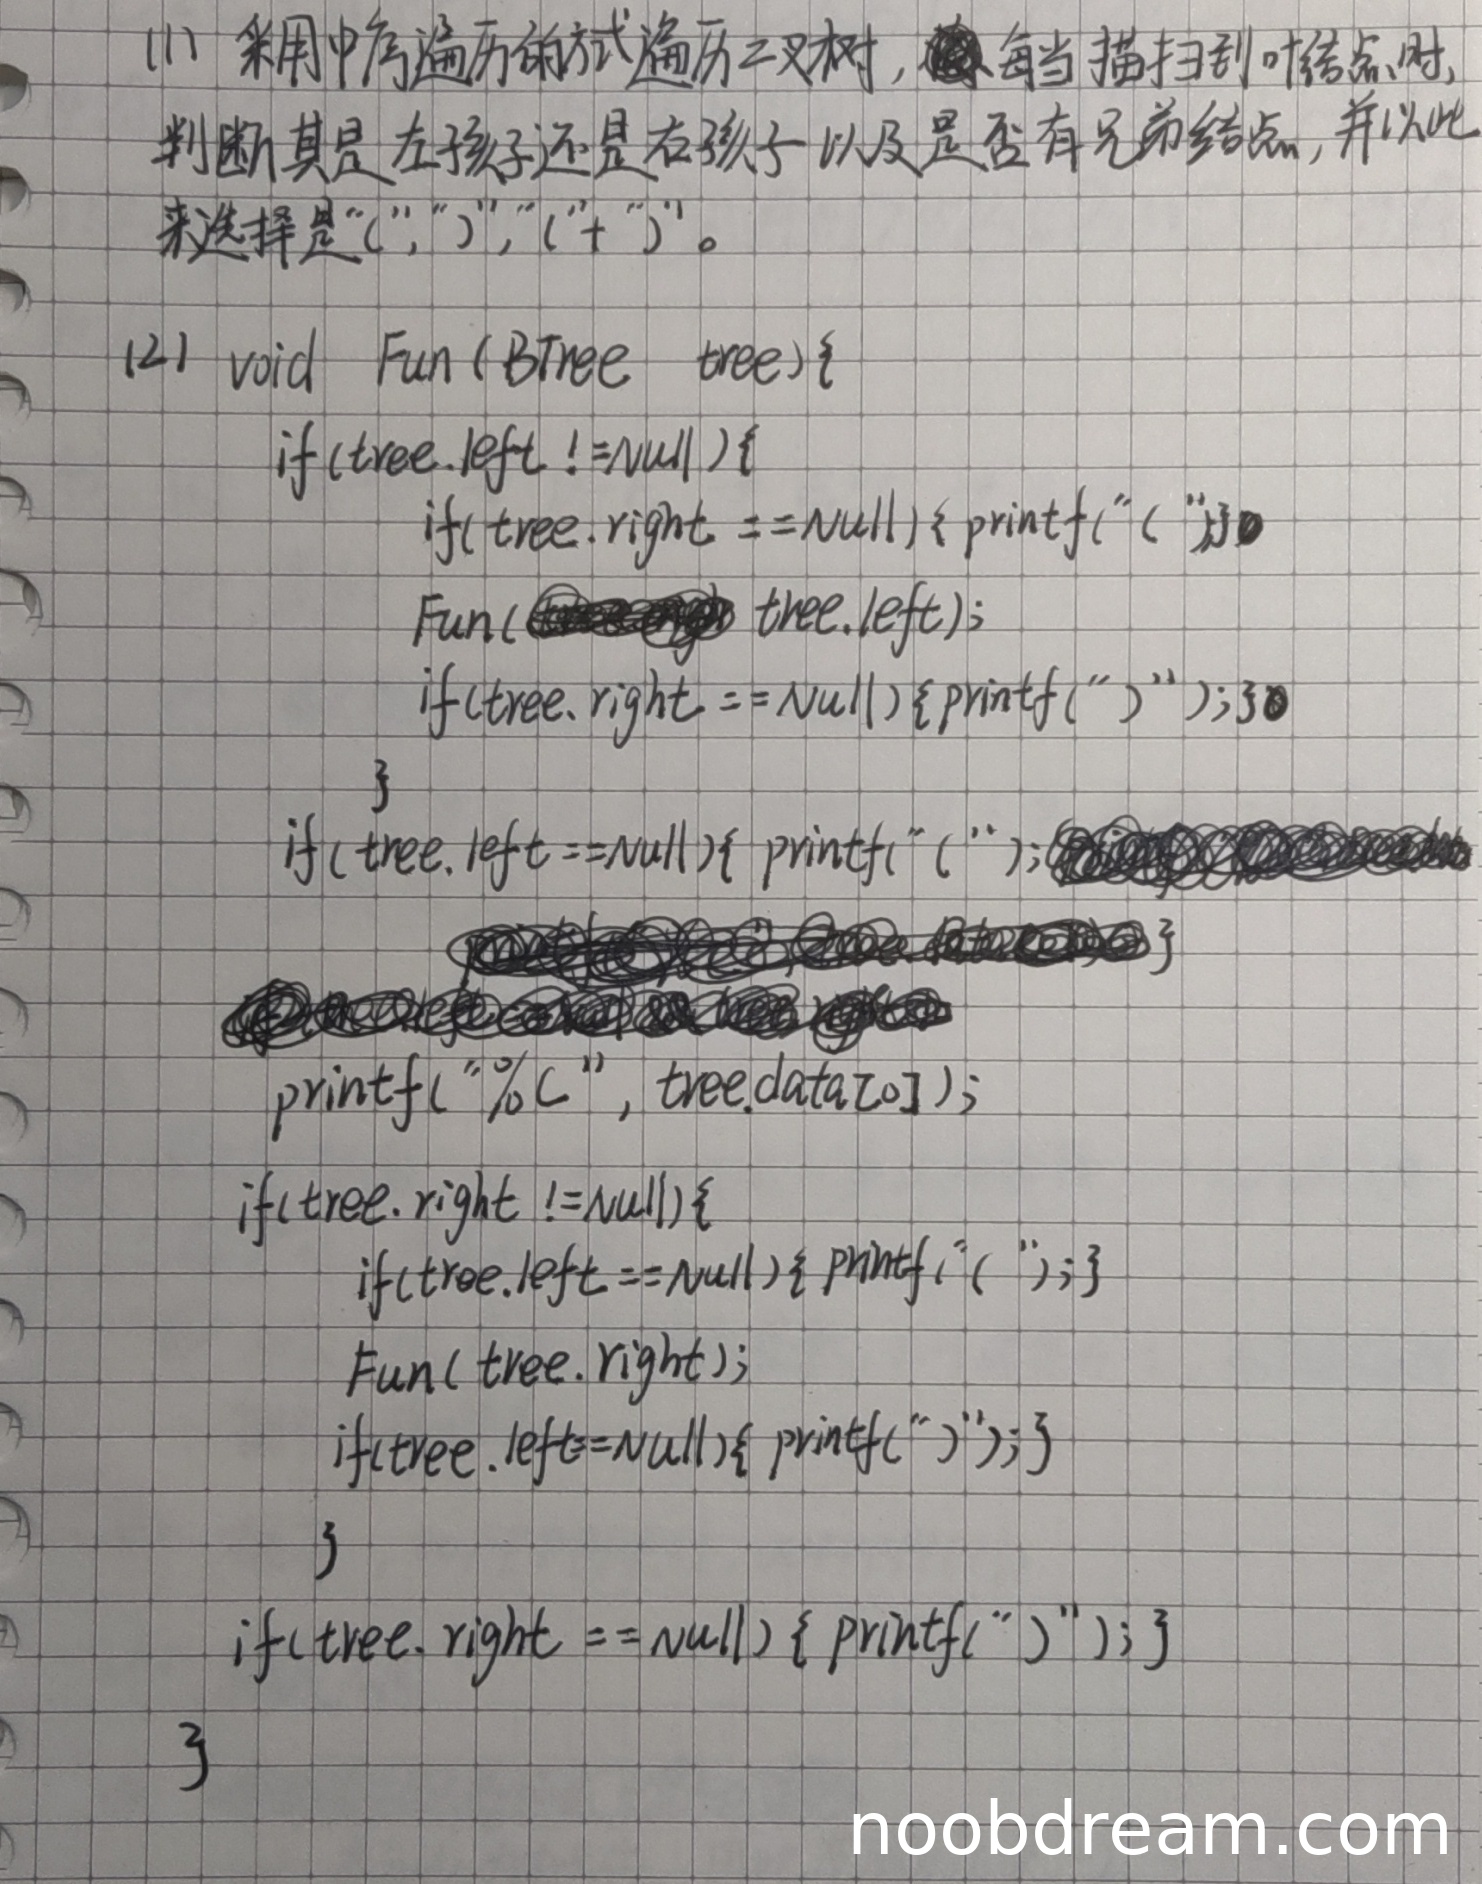 (1) 采用中序遍历的方式遍历二叉树，每当描扫到叶结点时，
判断其是左孩子还是右孩子以及是否有兄弟结点，并以此
来选择是"("，")"，"("+")"。
(2) void Fun(BTree tree){
if(tree.left !=Null){
if(tree.right ==Null){printf("(");}
Fun( tree.left);
if(tree.right ==Null){printf(")");}
}
if(tree.left==Null){ printf("(");
}
printf("%c", tree.data[0]);
if(tree.right !=Null){
if(tree.left==Null){ printf("(");}
Fun(tree.right);
if(tree.left==Null){ printf(")");}
}
if(tree.right ==Null){ printf(")");}
}
noobdream.com